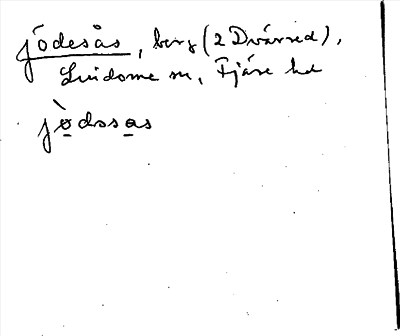 jödesås, berg (2 Dvärred),
Lindome sn, Fjäre hd
jò̱dssa̱s